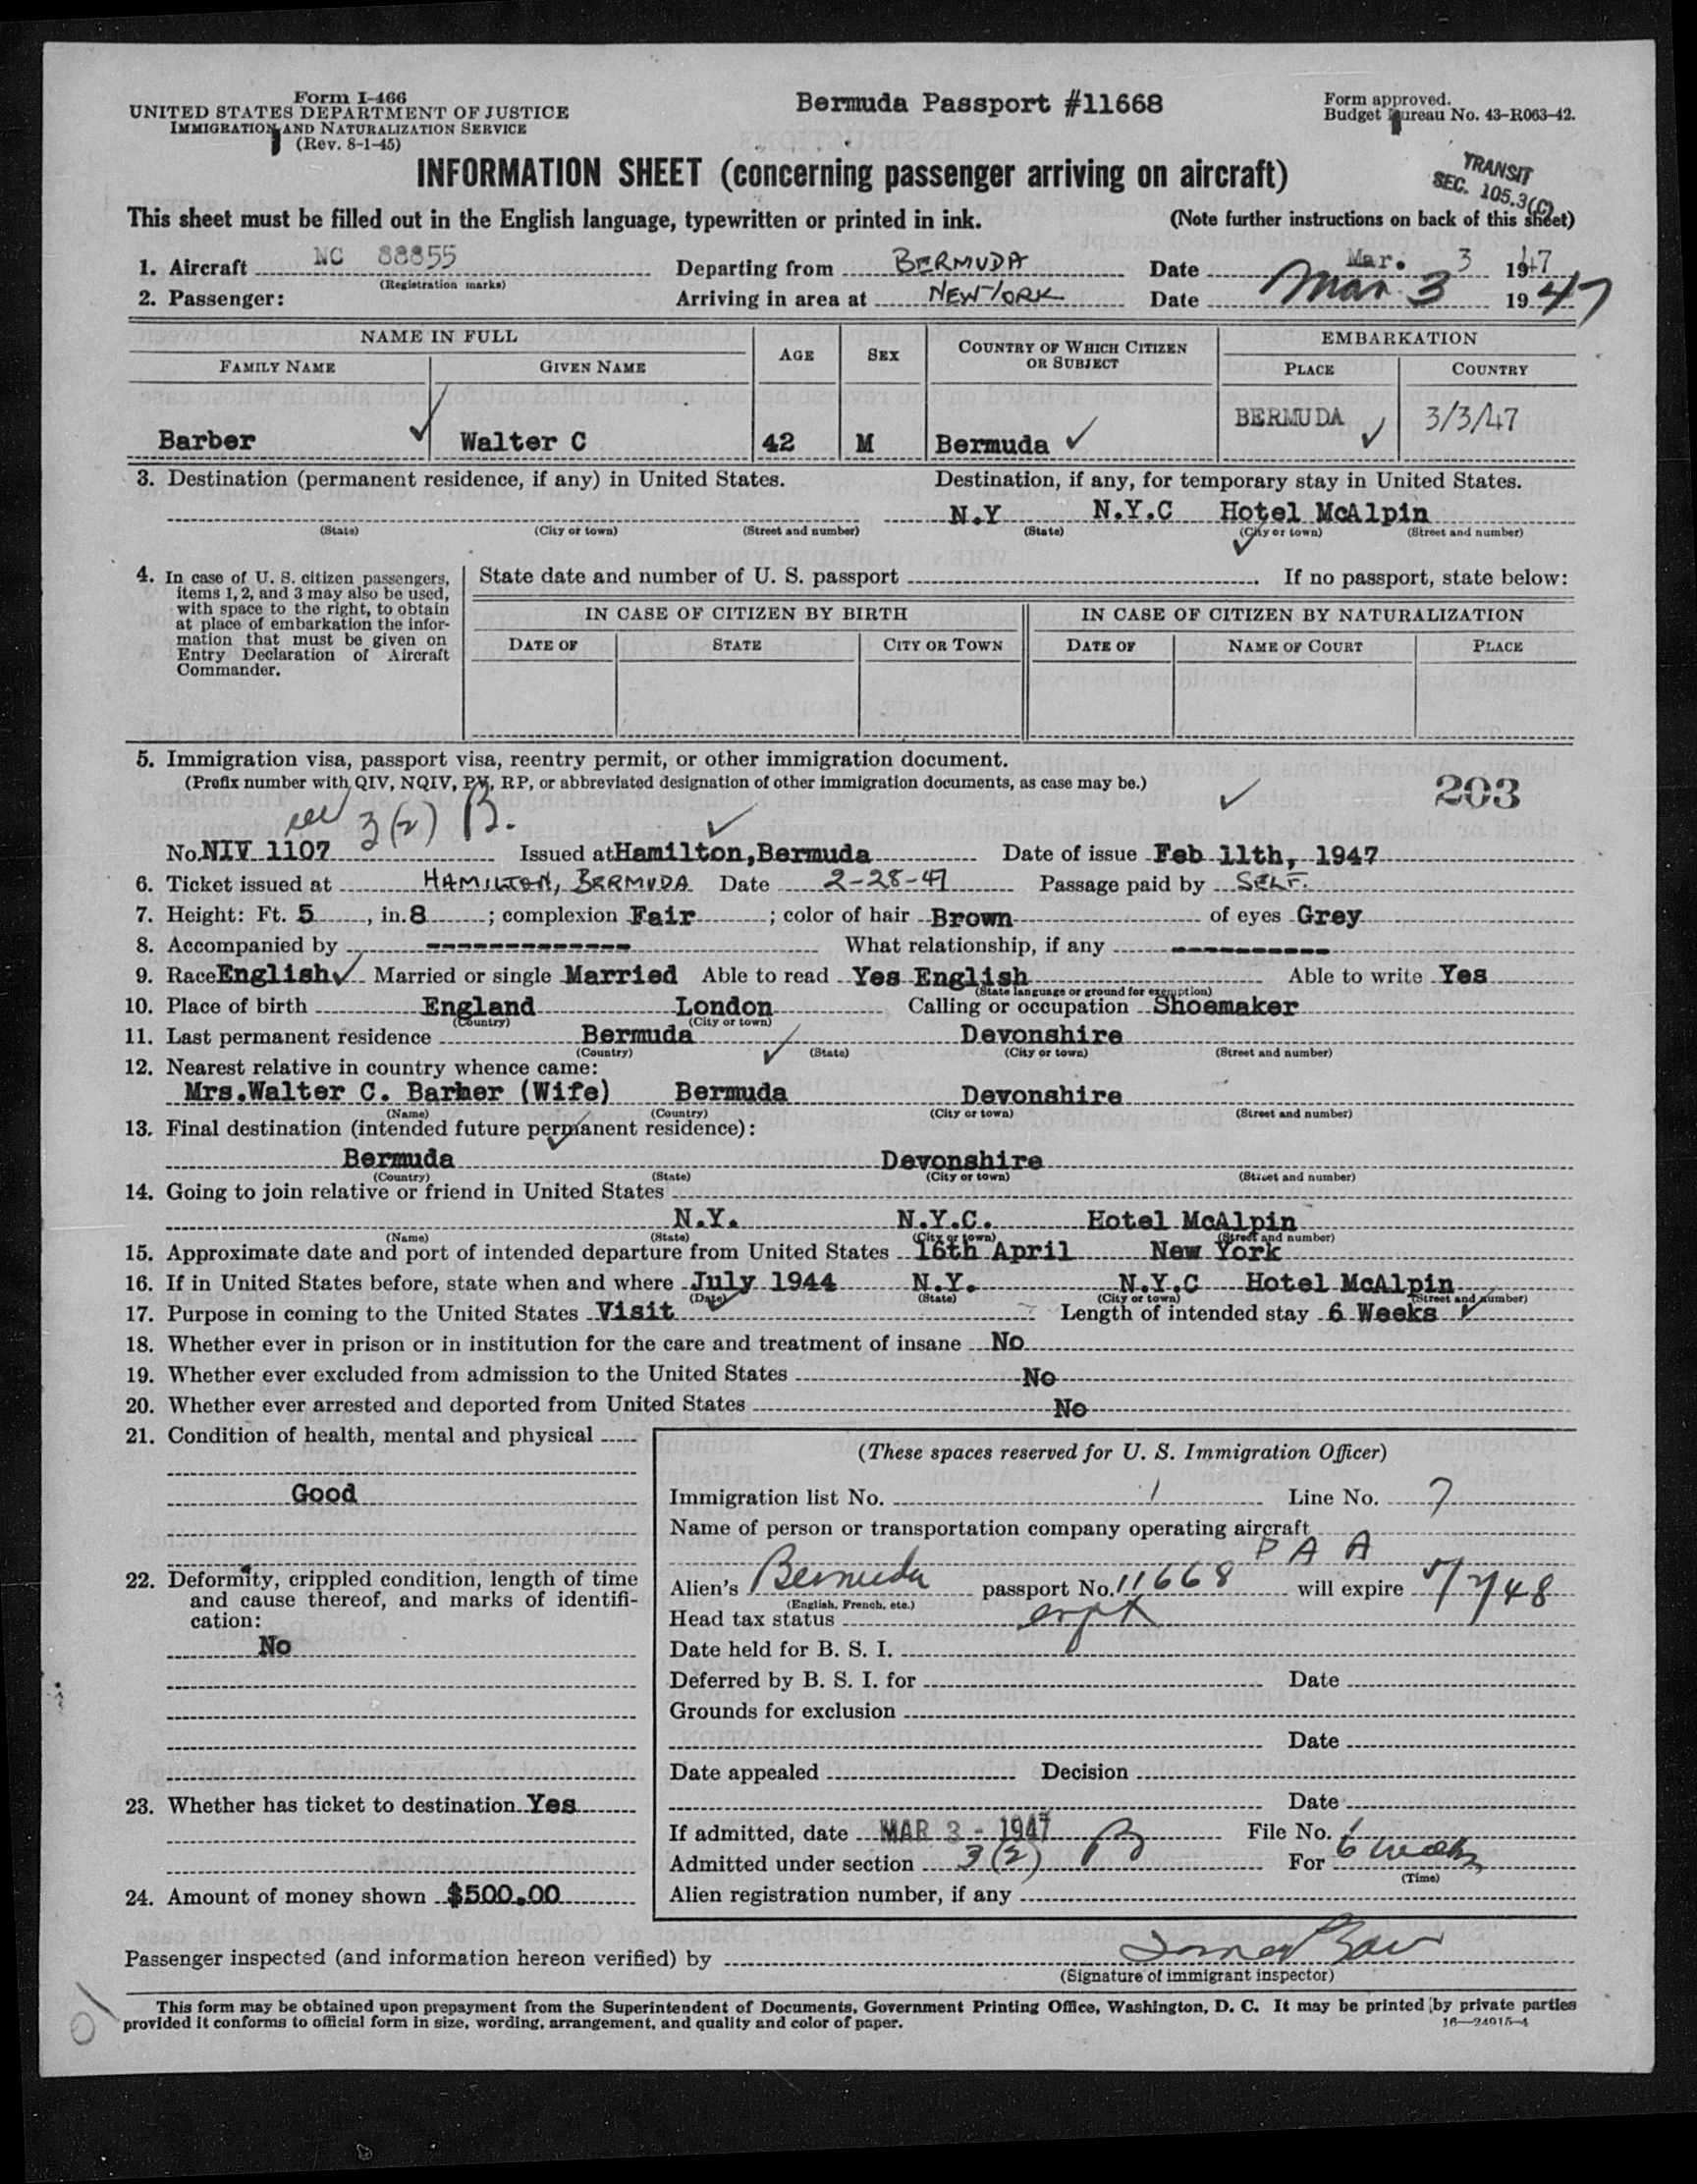 Form I-466
UNITED STATES DEPARTMENT OF JUSTICE
IMMIGRATION AND NATURALIZATION SERVICE
(Rev. 8-1-45)
Bermuda Passport #11668
Form approved.
Budget Bureau No. 43-R063-42.
INFORMATION SHEET (concerning passenger arriving on aircraft)
TRANSIT
SEC. 105.3(C)
This sheet must be filled out in the English language, typewritten or printed in ink. (Note further instructions on back of this sheet)
1. Aircraft NC 88855 Departing from BERMUDA Date Mar. 3 1947
(Registration marks)
2. Passenger: Arriving in area at NEW YORK Date Mar 3 1947
NAME IN FULL AGE SEX COUNTRY OF WHICH CITIZEN OR SUBJECT EMBARKATION
FAMILY NAME GIVEN NAME PLACE COUNTRY
Barber Walter C 42 M Bermuda BERMUDA 3/3/47
3. Destination (permanent residence, if any) in United States. Destination, if any, for temporary stay in United States.
N.Y N.Y.C Hotel McAlpin
(State) (City or town) (Street and number) (State) (City or town) (Street and number)
4. In case of U. S. citizen passengers, items 1, 2, and 3 may also be used, with space to the right, to obtain at place of embarkation the information that must be given on Entry Declaration of Aircraft Commander.
State date and number of U. S. passport If no passport, state below:
IN CASE OF CITIZEN BY BIRTH IN CASE OF CITIZEN BY NATURALIZATION
DATE OF STATE CITY OR TOWN DATE OF NAME OF COURT PLACE
5. Immigration visa, passport visa, reentry permit, or other immigration document.
(Prefix number with QIV, NQIV, PV, RP, or abbreviated designation of other immigration documents, as case may be.)
203
3(2) B.
No. NIV 1107 Issued at Hamilton, Bermuda Date of issue Feb 11th, 1947
6. Ticket issued at HAMILTON, BERMUDA Date 2-28-47 Passage paid by SELF.
7. Height: Ft. 5, in. 8; complexion Fair; color of hair Brown of eyes Grey
8. Accompanied by ------------- What relationship, if any ----------
9. Race English Married or single Married Able to read Yes English Able to write Yes
(State language or ground for exemption)
10. Place of birth England London Calling or occupation Shoemaker
(Country) (City or town)
11. Last permanent residence Bermuda Devonshire
(Country) (State) (City or town) (Street and number)
12. Nearest relative in country whence came:
Mrs.Walter C. Barber (Wife) Bermuda Devonshire
(Name) (Country) (City or town) (Street and number)
13. Final destination (intended future permanent residence):
Bermuda Devonshire
(Country) (State) (City or town) (Street and number)
14. Going to join relative or friend in United States
N.Y. N.Y.C. Hotel McAlpin
(Name) (State) (City or town) (Street and number)
15. Approximate date and port of intended departure from United States 16th April New York
16. If in United States before, state when and where July 1944 N.Y. N.Y.C Hotel McAlpin
(Date) (State) (City or town) (Street and number)
17. Purpose in coming to the United States Visit Length of intended stay 6 Weeks
18. Whether ever in prison or in institution for the care and treatment of insane No
19. Whether ever excluded from admission to the United States No
20. Whether ever arrested and deported from United States No
21. Condition of health, mental and physical
Good
22. Deformity, crippled condition, length of time and cause thereof, and marks of identification:
No
23. Whether has ticket to destination Yes
24. Amount of money shown $500.00
(These spaces reserved for U. S. Immigration Officer)
Immigration list No. 1 Line No. 7
Name of person or transportation company operating aircraft
P A A
Alien's Bermuda passport No. 11668 will expire
(English, French, etc.)
Head tax status
Date held for B. S. I.
Deferred by B. S. I. for Date
Grounds for exclusion
Date
Date appealed Decision
Date
If admitted, date MAR 3 - 1947 File No.
Admitted under section 3(2) B For 6 weeks
(Time)
Alien registration number, if any
Passenger inspected (and information hereon verified) by
(Signature of immigrant inspector)
This form may be obtained upon prepayment from the Superintendent of Documents, Government Printing Office, Washington, D. C. It may be printed by private parties
provided it conforms to official form in size, wording, arrangement, and quality and color of paper.
16—24915-4